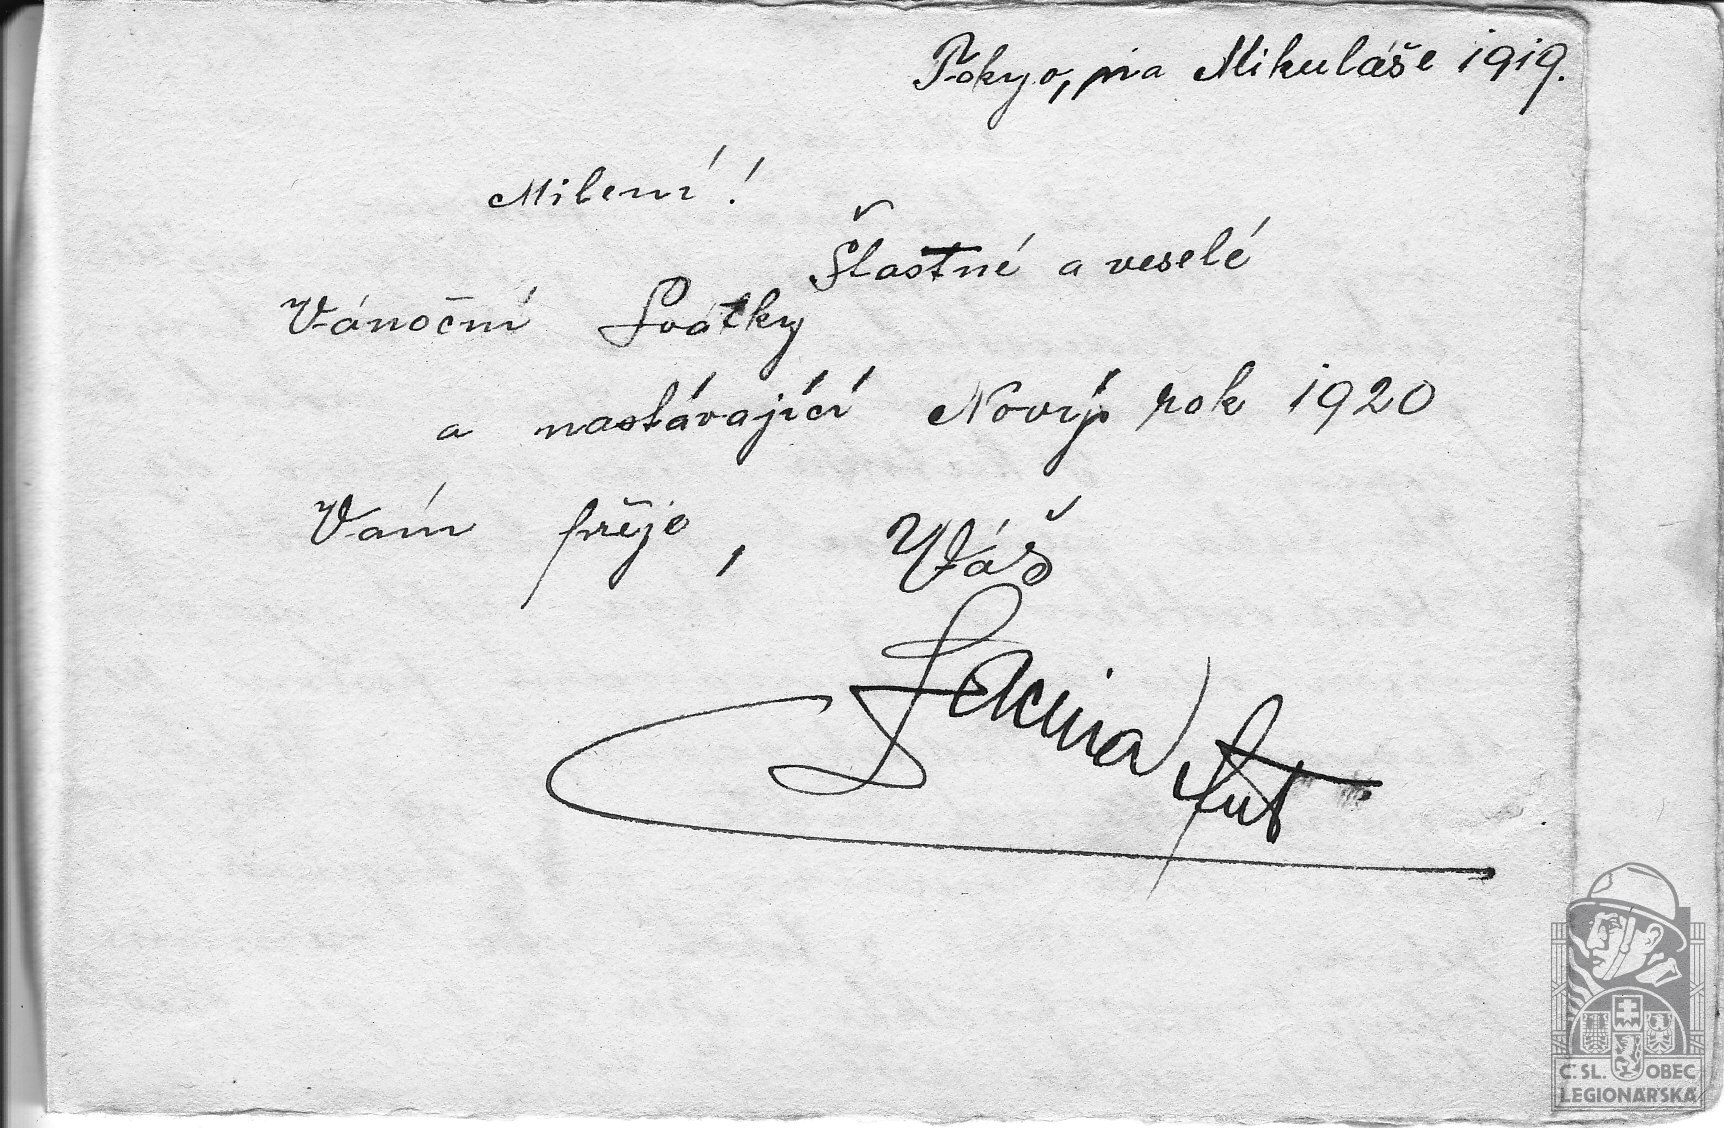 Tokyo, na Mikuláše 1919.
Milení!
Šťastné a veselé
Vánoční Svátky
a nastávající Nový rok 1920
Vám přeje, Váš
Ant
Č. SL. OBEC
LEGIONÁŘSKÁ